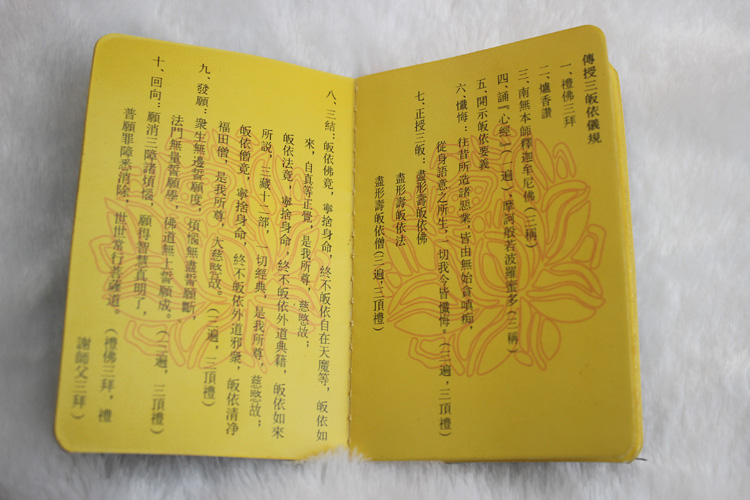 傳授三皈依儀規
一、禮佛三拜
二、爐香讚
三、南無本師釋迦牟尼佛（三稱）
四、誦『心經』（一遍），摩訶般若波羅蜜多（三稱）
五、開示皈依要義
六、懺悔：往昔所造諸惡業，皆由無始貪嗔痴，
從身語意之所生，一切我今皆懺悔。（三遍，三頂禮）
七、正授三皈：盡形壽皈依佛
盡形壽皈依法
盡形壽皈依僧（三遍，三頂禮）
八、三結：皈依佛竟，寧捨身命，終不皈依自在天魔等，皈依如
來，自真等正覺，是我所尊，慈愍故；
皈依法竟，寧捨身命，終不皈依外道典籍，皈依如來
所說，三藏十二部，一切經典，是我所尊，慈愍故；
皈依僧竟，寧捨身命，終不皈依外道邪衆，皈依清净
福田僧，是我所尊，大慈愍故。（三遍，三頂禮）
九、發願：衆生無邊誓願度，煩惱無盡誓願斷，
法門無量誓願學，佛道無上誓願成。（三遍，三頂禮）
十、回向：願消三障諸煩惱，願得智慧真明了，
普願罪障悉消除，世世常行菩薩道。（禮佛三拜，禮
謝師父三拜）